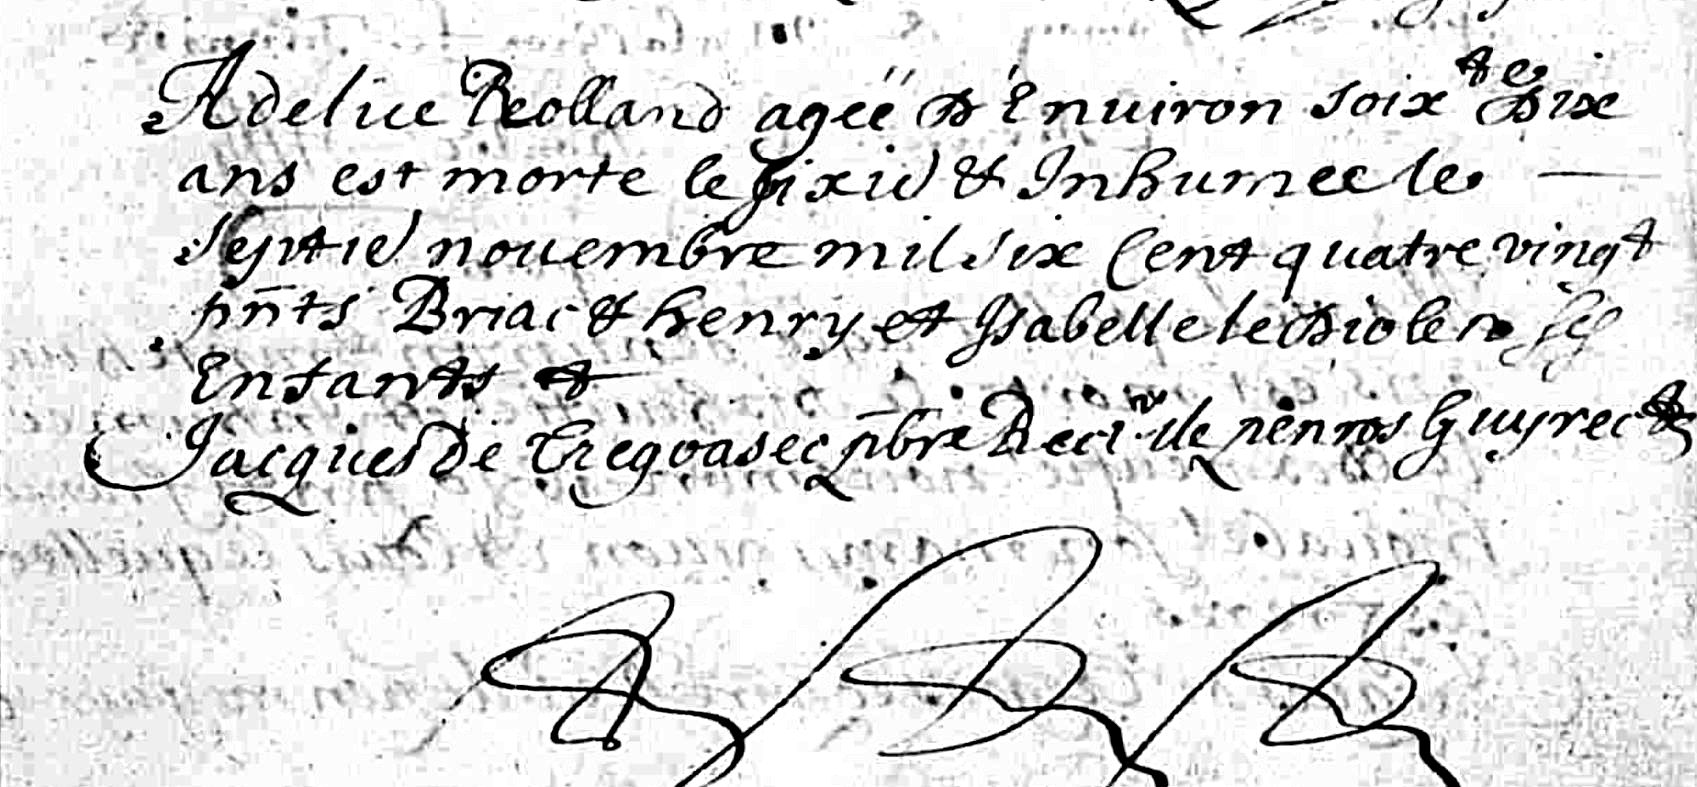 Adelice Rolland agée d'Enuiron soix^te dix
ans est morte le sixie & Inhumee le
septie nouembre mil six Cent quatre vingt
pnts Briac & henry et Isabelle le diolen ses
Enfants &
Jacques de Tregoasec pbre Rectr de penros Guyrec &